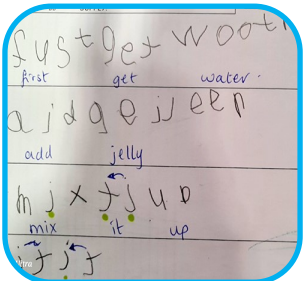 fust get woot
first get water.
ajd ge jj een
add jelly
mjx tj up
mix it up